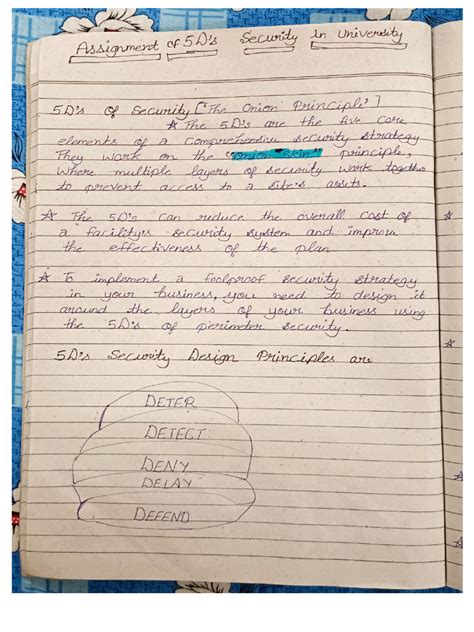 Assignment of 5D's Security in University
5D's of Security ["The Onion Principle"]
☆ The 5D's are the five core
elements of a comprehensive security strategy
They work on the "onion skin" principle,
where multiple layers of security work together
to prevent access to a site's assets.
☆ The 5D's can reduce the overall cost of
a facility's security system and improve
the effectiveness of the plan
☆ To implement a foolproof security strategy
in your business, you need to design it
around the layers of your business using
the 5D's of perimeter security.
5D's Security Design Principles are
DETER
DETECT
DENY
DELAY
DEFEND